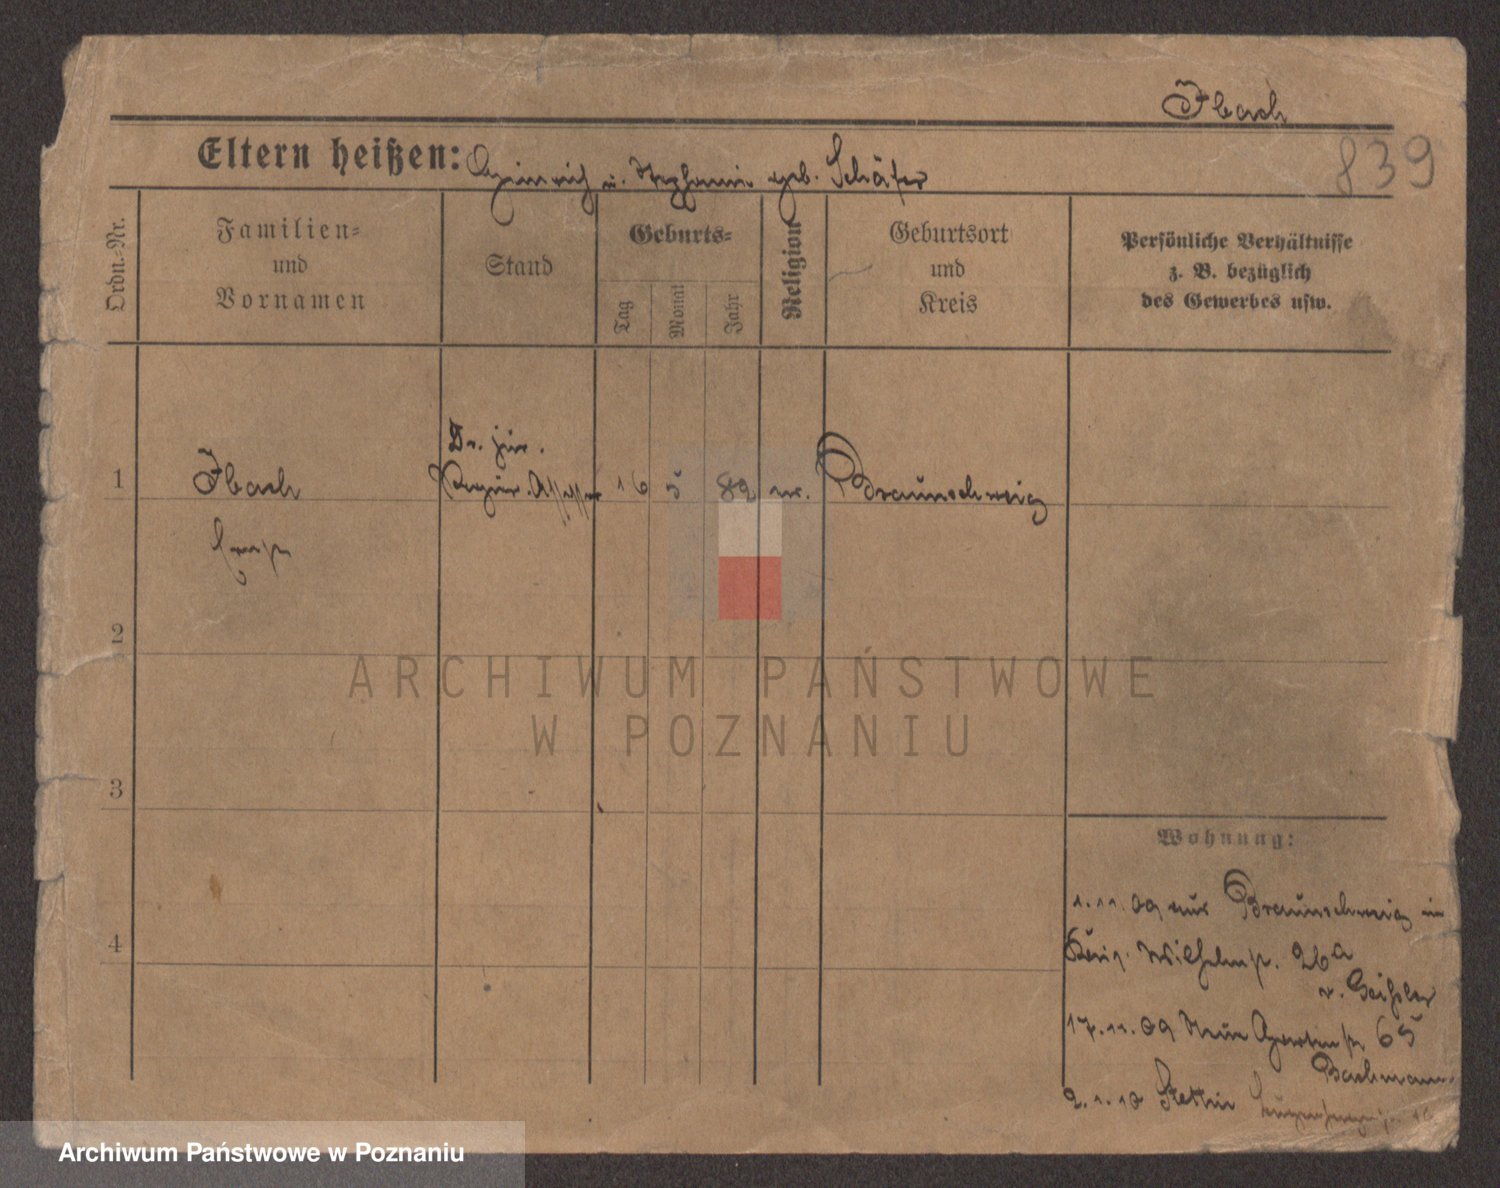 Ibach
839
Eltern heißen: Heinrich u. Stephanie geb. Schäfer
Ordn.-Nr.
Familien-
und
Vornamen
Stand
Geburts-
Tag
Monat
Jahr
Religion
Geburtsort
und
Kreis
Persönliche Verhältnisse
z. B. bezüglich
des Gewerbes usw.
Dr. jur.
1 Ibach Regier. Assessor 16 5 82 ev. Braunschweig
Ernst
2
3
4
Wohnung:
1.11.09 aus Braunschweig in
Wilhelmstr. 26a
v. Geißler
17.11.09 Neue Gartenstr. 65
Bachmann
2.1.10 Stettin
ARCHIWUM PAŃSTWOWE
W POZNANIU
Archiwum Państwowe w Poznaniu